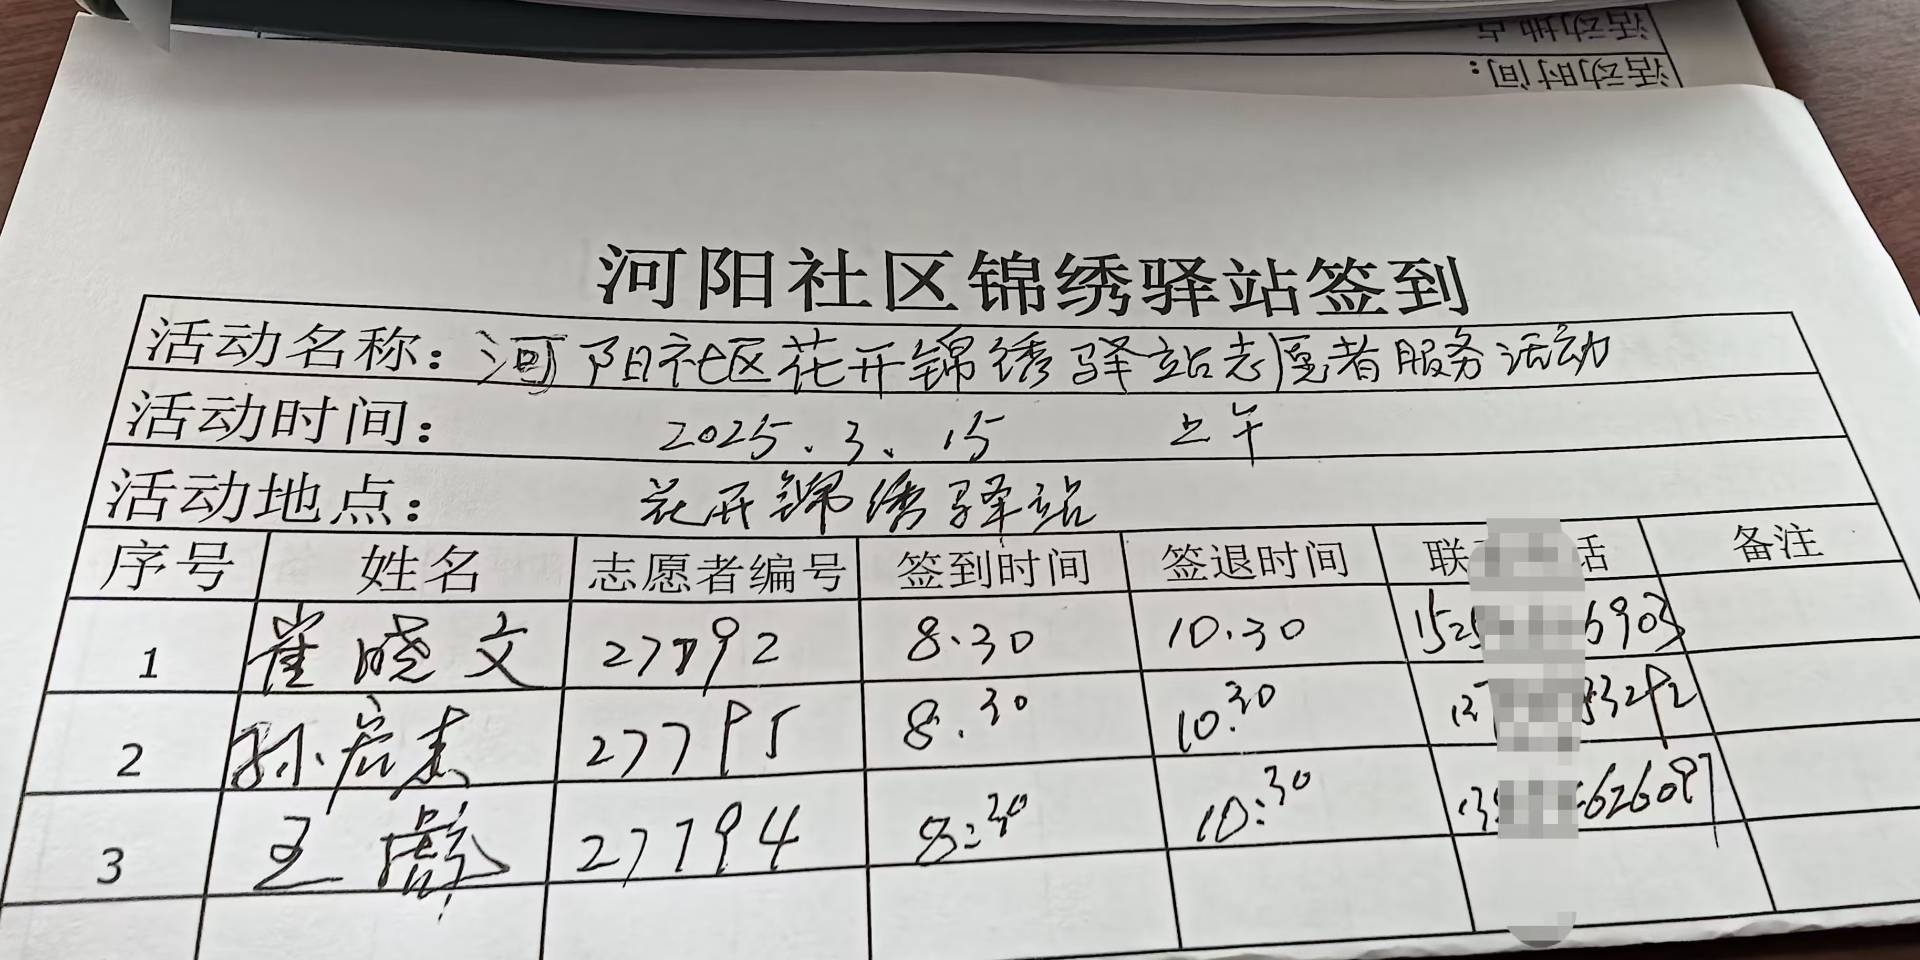 活动地点
活动时间：
河阳社区锦绣驿站签到
活动名称：河阳社区花开锦绣驿站志愿者服务活动
活动时间： 2025.3.15 上午
活动地点： 花开锦绣驿站
序号 姓名 志愿者编号 签到时间 签退时间 联 话 备注
1 崔晓文 27792 8.30 10.30 152 6903
2 孙宏杰 27795 8.30 10:30 137 3292
3 王 27794 8:30 10:30 13 626097